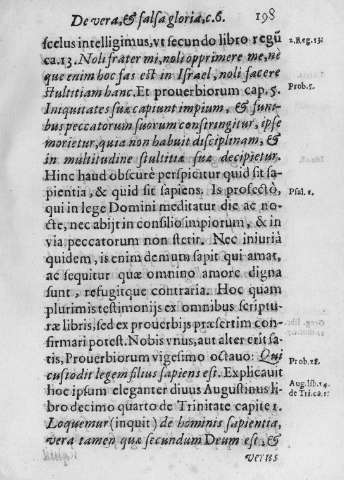 De vera, & falsa gloria, c. 6. 198
scelus intelligimus, vt secundo libro regũ 2. Reg. 13.
ca. 13. Noli frater mi, noli opprimere me, ne
que enim hoc fas est in Israel, noli facere
stultitiam hanc. Et prouerbiorum cap. 5. Prob. 5.
Iniquitates suæ capiunt impium, & funi-
bus peccatorum suorum constringitur, ipse
morietur, quia non habuit disciplinam, &
in multitudine stultitiæ suæ decipietur.
Hinc haud obscurè perspicitur quid sit sa-
pientia, & quid sit sapiens. Is profectò, Psal. 1.
qui in lege Domini meditatur die ac no-
cte, nec abijt in consilio impiorum, & in
via peccatorum non stetit. Nec iniuriâ
quidem, is enim demum sapit qui amat,
ac sequitur quæ omnino amore digna
sunt, refugitque contraria. Hoc quam
plurimis testimonijs ex omnibus scriptu-
ræ libris, sed ex prouerbijs præsertim con-
firmari potest. Nobis vnus, aut alter erit sa-
tis, Prouerbiorum vigesimo octauo: Qui Prob. 28.
custodit legem filius sapiens est. Explicauit
hoc ipsum eleganter diuus Augustinus li- Aug. lib. 14.
bro decimo quarto de Trinitate capite 1. de Tri. ca. 1.
Loquemur (inquit) de hominis sapientia,
vera tamen quæ secundum Deum est, &
verus